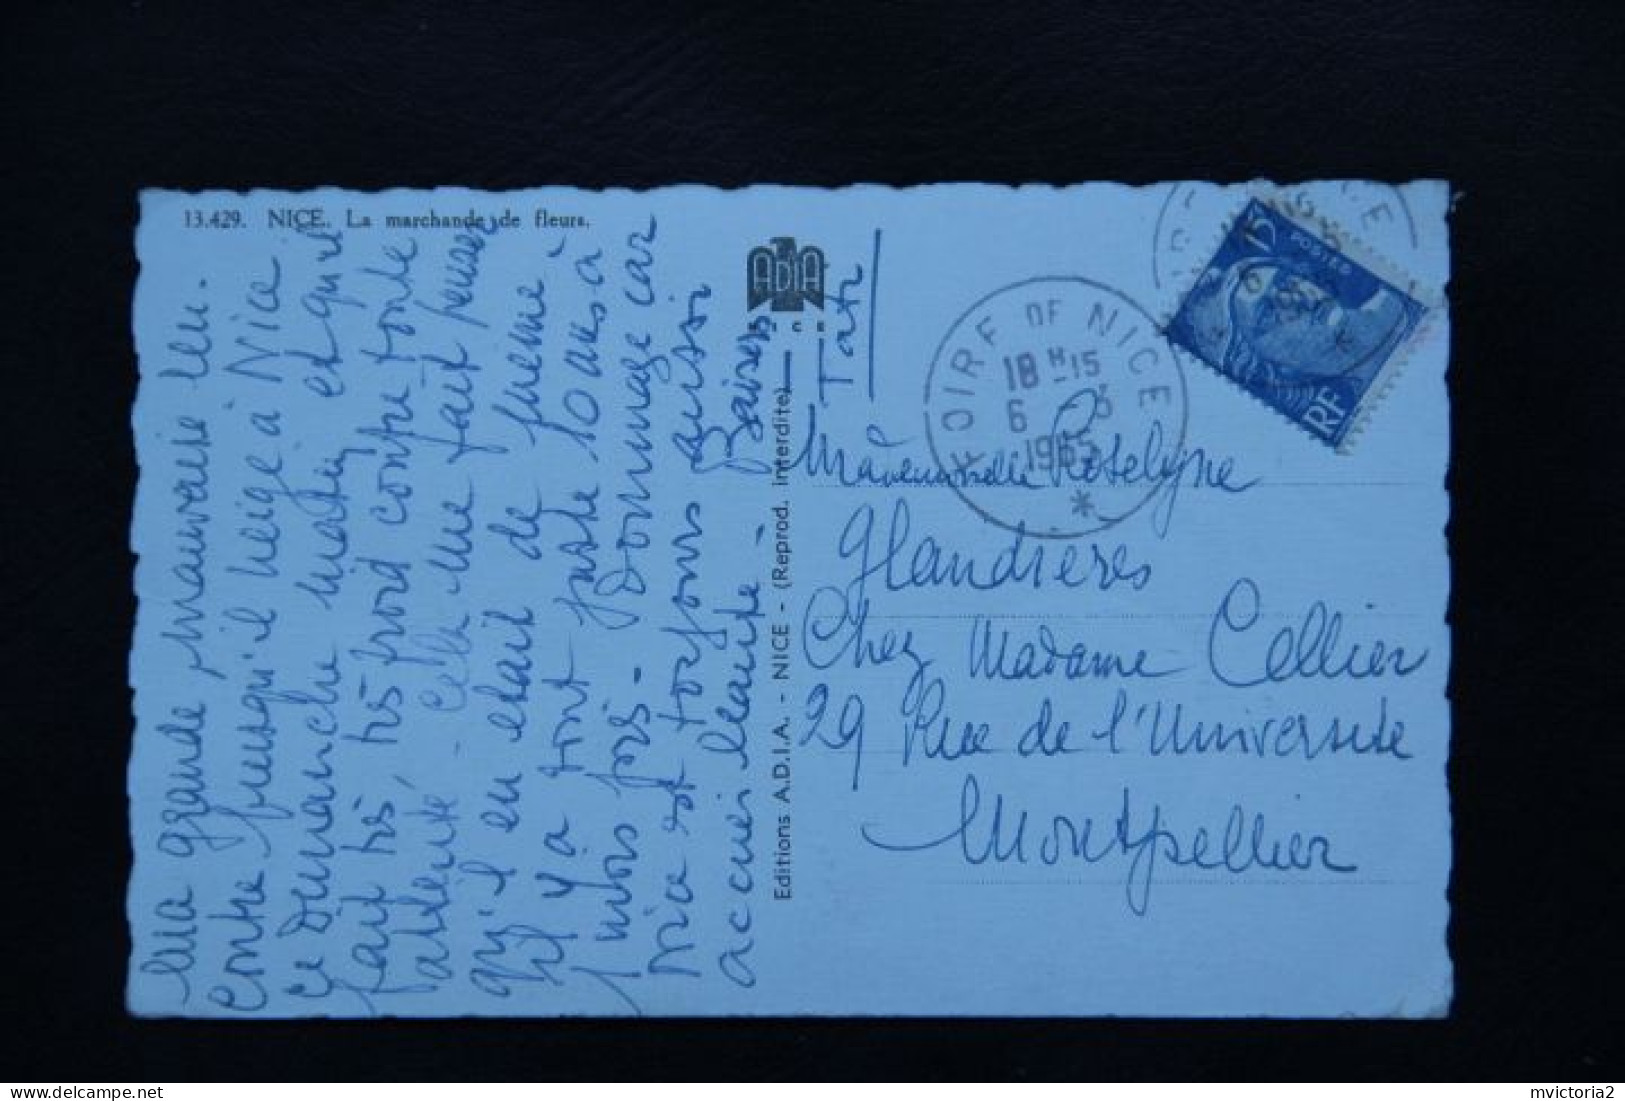 13.429. NICE. La marchande de fleurs.
Ma grande mauvaise
contre puisqu'il neige à Nice
ce Dimanche matin et qu'il
fait très, très froid contre toute
attente - Cela me fait penser
qu'il en était de même
il y a tout juste 10 ans à
mois près - Dommage car
Nice est toujours aussi
accueillante - Baisers
Tati
Editions A.D.I.A. - NICE - (Reprod. interdite)
ADIA
NICE
FOIRE DE NICE
18 H 15
6 3
1955
15
POSTES
RF
Mademoiselle Roselyne
Glandières
Chez Madame Cellier
29 Rue de l'Université
Montpellier
mvictoria2